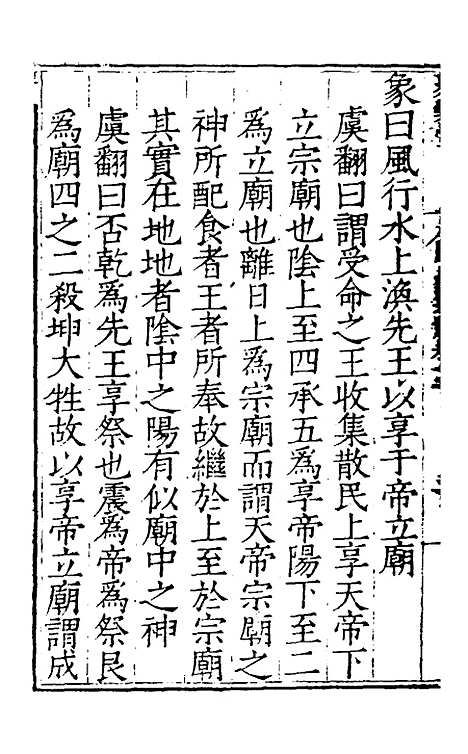 象曰風行水上渙先王以享于帝立廟
虞翻曰謂受命之王收集散民上享天帝下
立宗廟也陰上至四承五爲享帝陽下至二
爲立廟也離日上爲宗廟而謂天帝宗廟之
神所配食者王者所奉故繼於上至於宗廟
其實在地地者陰中之陽有似廟中之神
虞翻曰否乾爲先王享祭也震爲帝爲祭艮
爲廟四之二殺坤大牲故以享帝立廟謂成